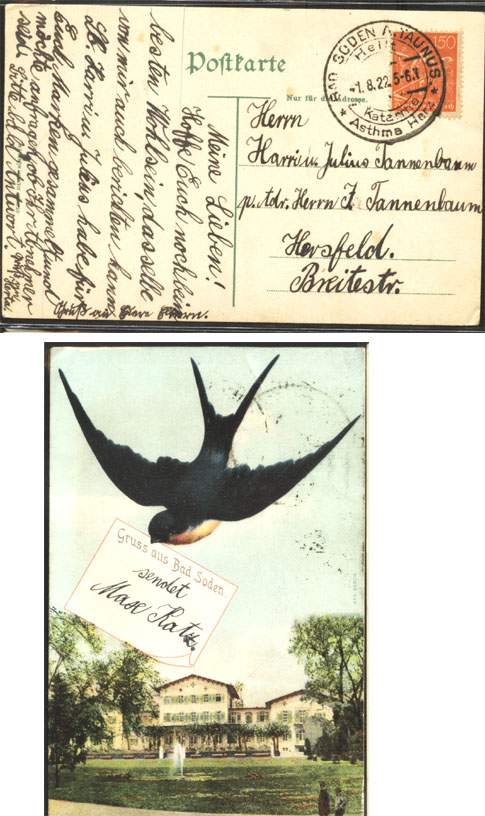 Postkarte
Nur für die Adresse.
BAD SODEN A. TAUNUS
Heilt
-1.8.22 5-6.
Katarrhe
* Asthma Herz *
150
Herrn
Harri u. Julius Tannenbaum
p. Adr. Herrn J. Tannenbaum
Hersfeld.
Breitestr.
Meine Lieben!
Hoffe Euch noch beim
besten Wohlsein, dasselbe
von mir auch berichten kann
Lb. Harri u. Julius habe für
Euch Marken gesammelt und
möchte anfragen ob Ihr Abnehmer
seid. Bitte bald Antwort.
Gruß an Eure Eltern.
Gruss aus Bad Soden
sendet
Max Katz.